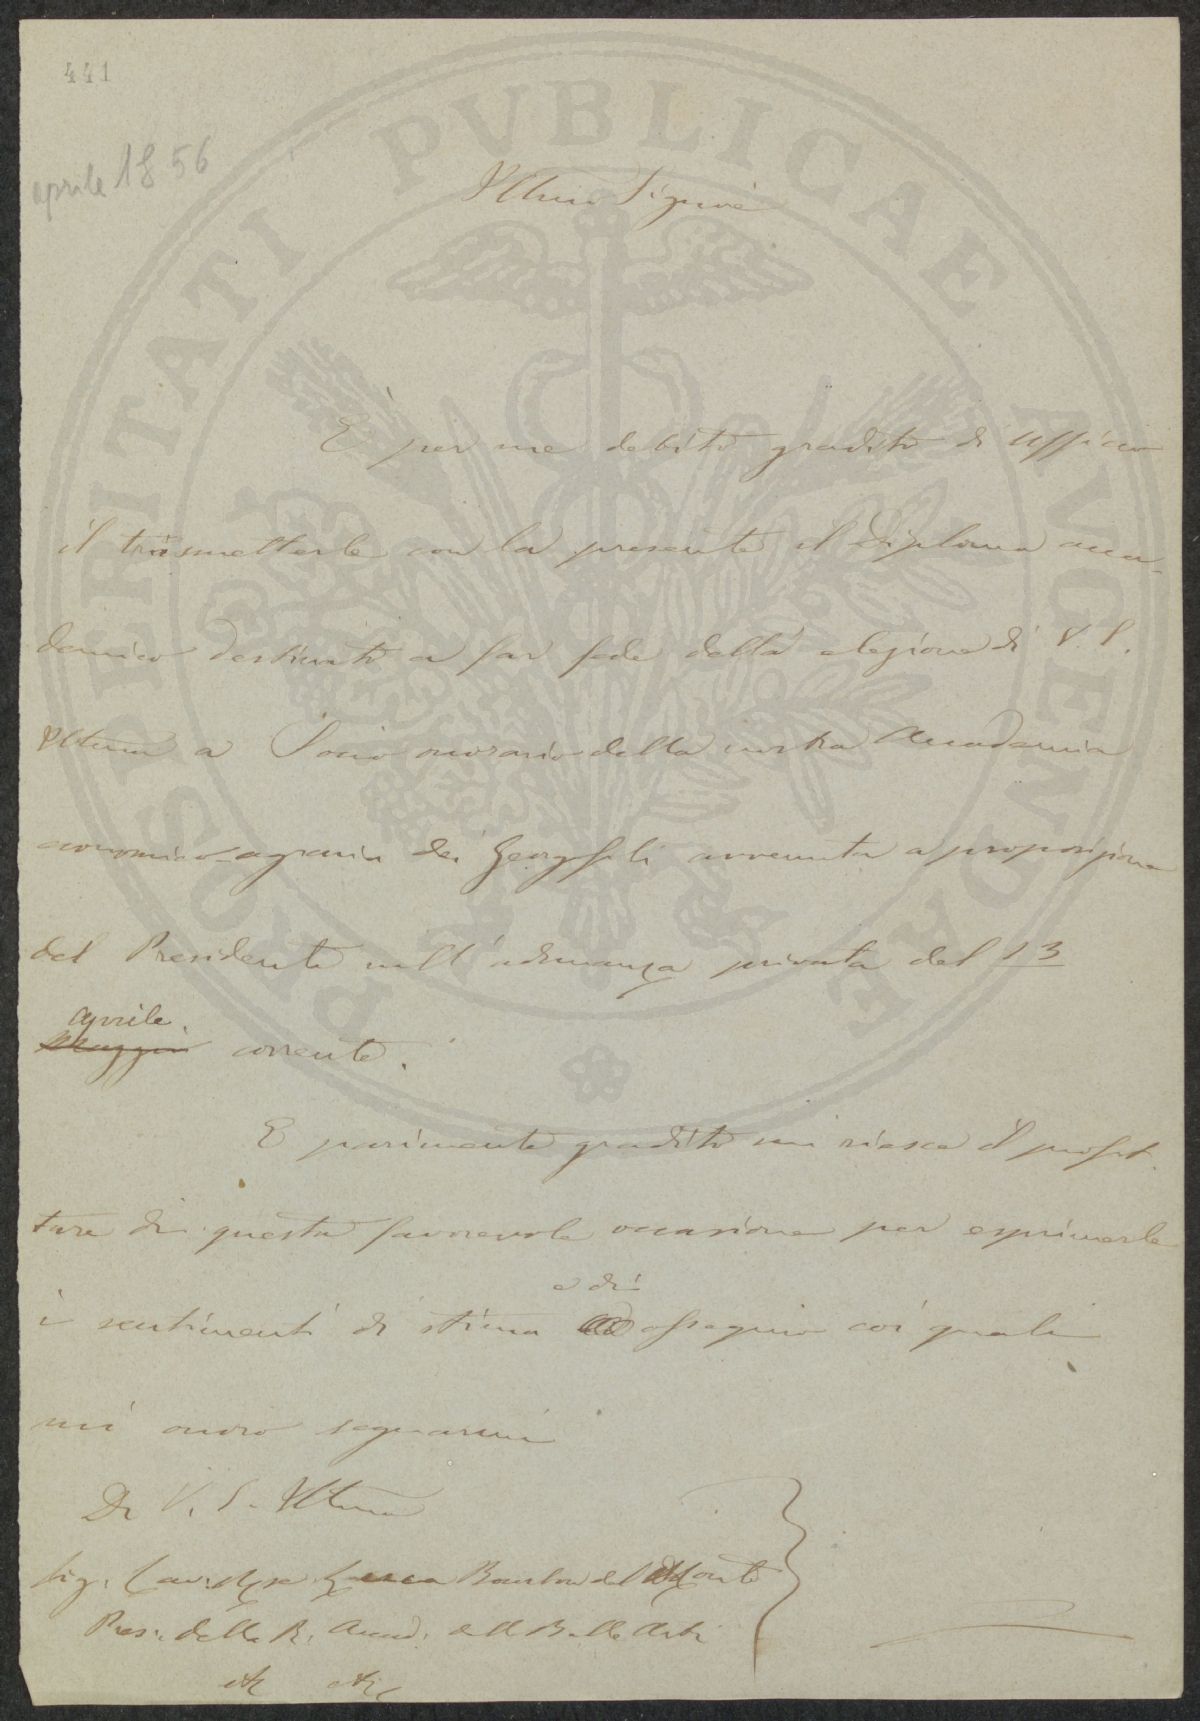 441
aprile 1856
Illmo Signore
È per me debito gradito di Ufficio
il trasmetterle con la presente il Diploma acca-
demico destinato a far fede della elezione di V. S.
Illma a Socio onorario della nostra Accademia
economico-agraria dei Georgofili avvenuta a proposizione
del Presidente nell'adunanza privata del 13
aprile
Maggio corrente.
E parimente gradito mi riesce il profit-
tare di questa favorevole occasione per esprimerle
e di
i sentimenti di stima ossequio coi quali
mi onoro segnarmi
Di V. S. Illma
Sig. Cav. Bourbon del Monte
Pres. della R. Accad. delle Belle Arti
etc etc
PROSPERITATI PVBLICAE AVGENDAE